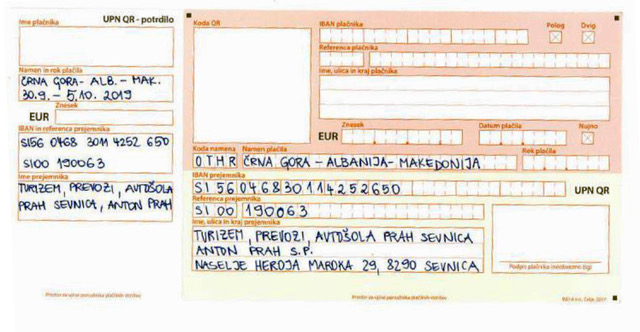 UPN QR - potrdilo
Ime plačnika
Namen in rok plačila
ČRNA GORA - ALB. - MAK.
30.9. - 5.10. 2019
Znesek
EUR
IBAN in referenca prejemnika
SI56 0468 3011 4252 650
SI00 190063
Ime prejemnika
TURIZEM, PREVOZI, AVTOŠOLA
PRAH SEVNICA, ANTON PRAH
Prostor za vpise ponudnika plačilnih storitev
Koda QR
IBAN plačnika
Polog
Dvig
Referenca plačnika
Ime, ulica in kraj plačnika
Znesek
Datum plačila
Nujno
EUR
Koda namena
Namen plačila
Rok plačila
OTHR ČRNA GORA - ALBANIJA - MAKEDONIJA
IBAN prejemnika
SI56046830114252650
UPN QR
Referenca prejemnika
SI00 190063
Ime, ulica in kraj prejemnika
TURIZEM, PREVOZI, AVTOŠOLA PRAH SEVNICA
ANTON PRAH S.P.
NASELJE HEROJA MAROKA 29, 8290 SEVNICA
Podpis plačnika (neobvezno žig)
Prostor za vpise ponudnika plačilnih storitev